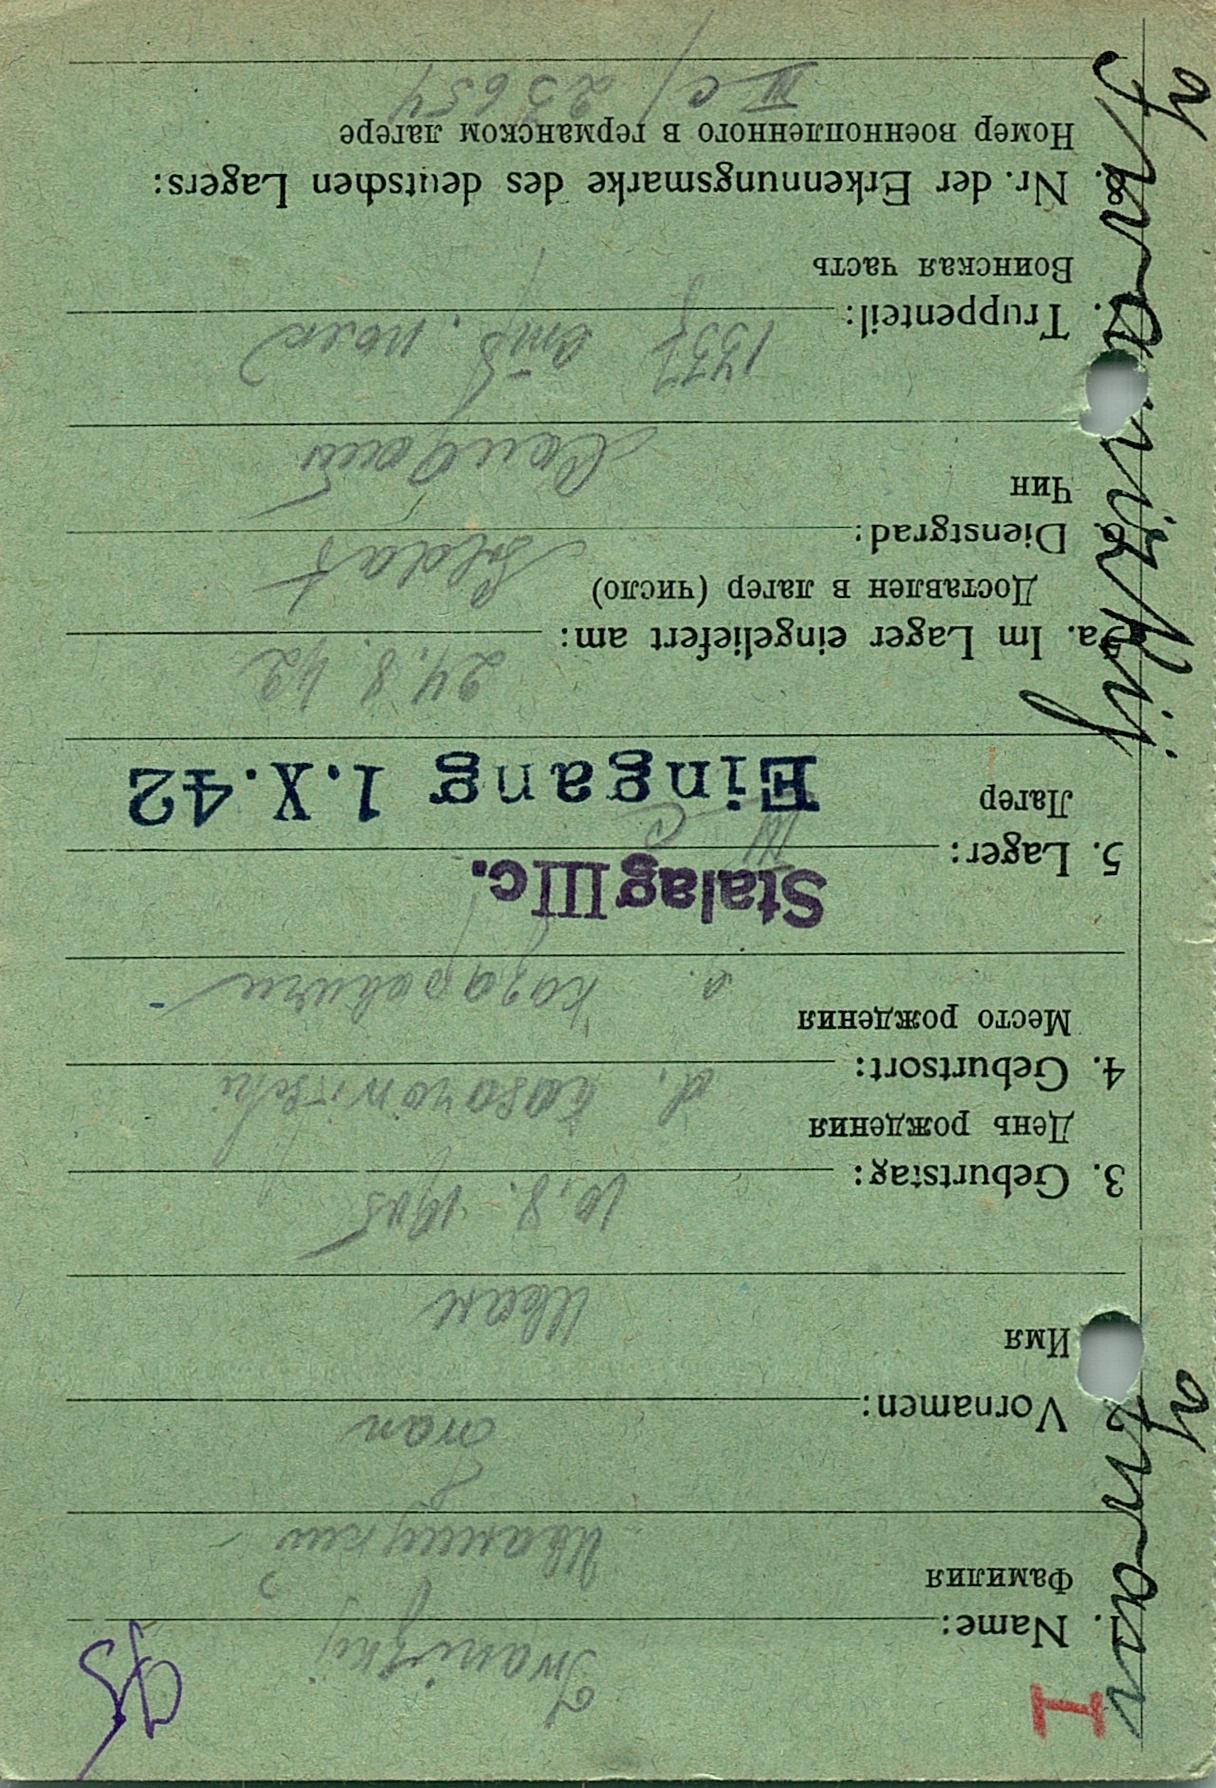 I
1. Name:
Iwanizkij
Фамилия
Иваницкий
Vornamen:
Iwan
Имя
Иван
3. Geburtstag:
10.8.1905
День рождения
4. Geburtsort:
d. Kosarowitschi
Место рождения
д. Козаровичи
Stalag III c.
5. Lager:
III C
Лагер
Eingang 1. X. 42
5a. Im Lager eingeliefert am:
24.8.42
Доставлен в лагер (число)
Dienstgrad:
Soldat
Чин
Солдат
Truppenteil:
1337 стр. полк
Воинская часть
Nr. der Erkennungsmarke des deutschen Lagers:
Номер военнопленного в германском лагере
III C/ 23654
Iwanizkij
Iwan